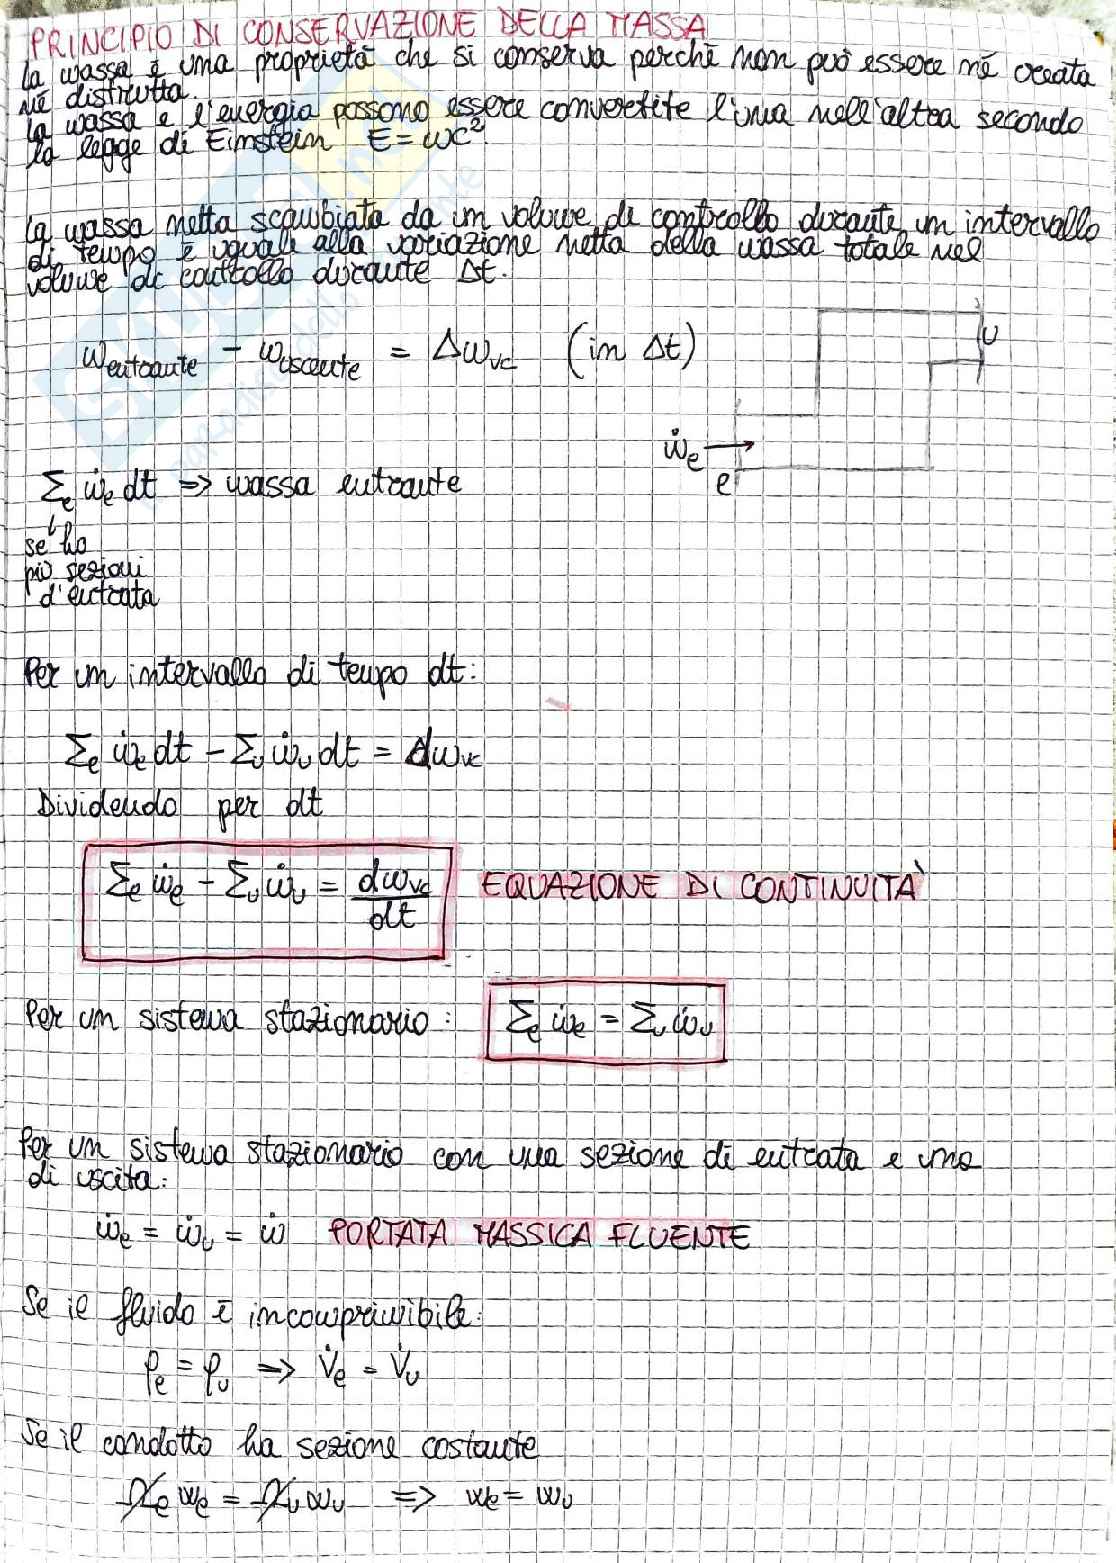 PRINCIPIO DI CONSERVAZIONE DELLA MASSA
La massa è una proprietà che si conserva perchè non può essere né creata
né distrutta.
La massa e l'energia possono essere convertite l'una nell'altra secondo
la legge di Einstein E = mc².
La massa netta scambiata da un volume di controllo durante un intervallo
di tempo è uguale alla variazione netta della massa totale nel
volume di controllo durante Δt.
m entrante - m uscente = Δm vc (in Δt)
U
ṁe →
e
Σe ṁe dt => massa entrante
se ho
più sezioni
d'entrata
Per un intervallo di tempo dt:
Σe ṁe dt - Σu ṁu dt = dm vc
Dividendo per dt
Σe ṁe - Σu ṁu = dm vc / dt EQUAZIONE DI CONTINUITÀ
Per un sistema stazionario: Σe ṁe = Σu ṁu
Per un sistema stazionario con una sezione di entrata e una
di uscita:
ṁe = ṁu = ṁ PORTATA MASSICA FLUENTE
Se il fluido è incomprimibile:
ρe = ρu => V̇e = V̇u
Se il condotto ha sezione costante
Ωe we = Ωu wu => we = wu